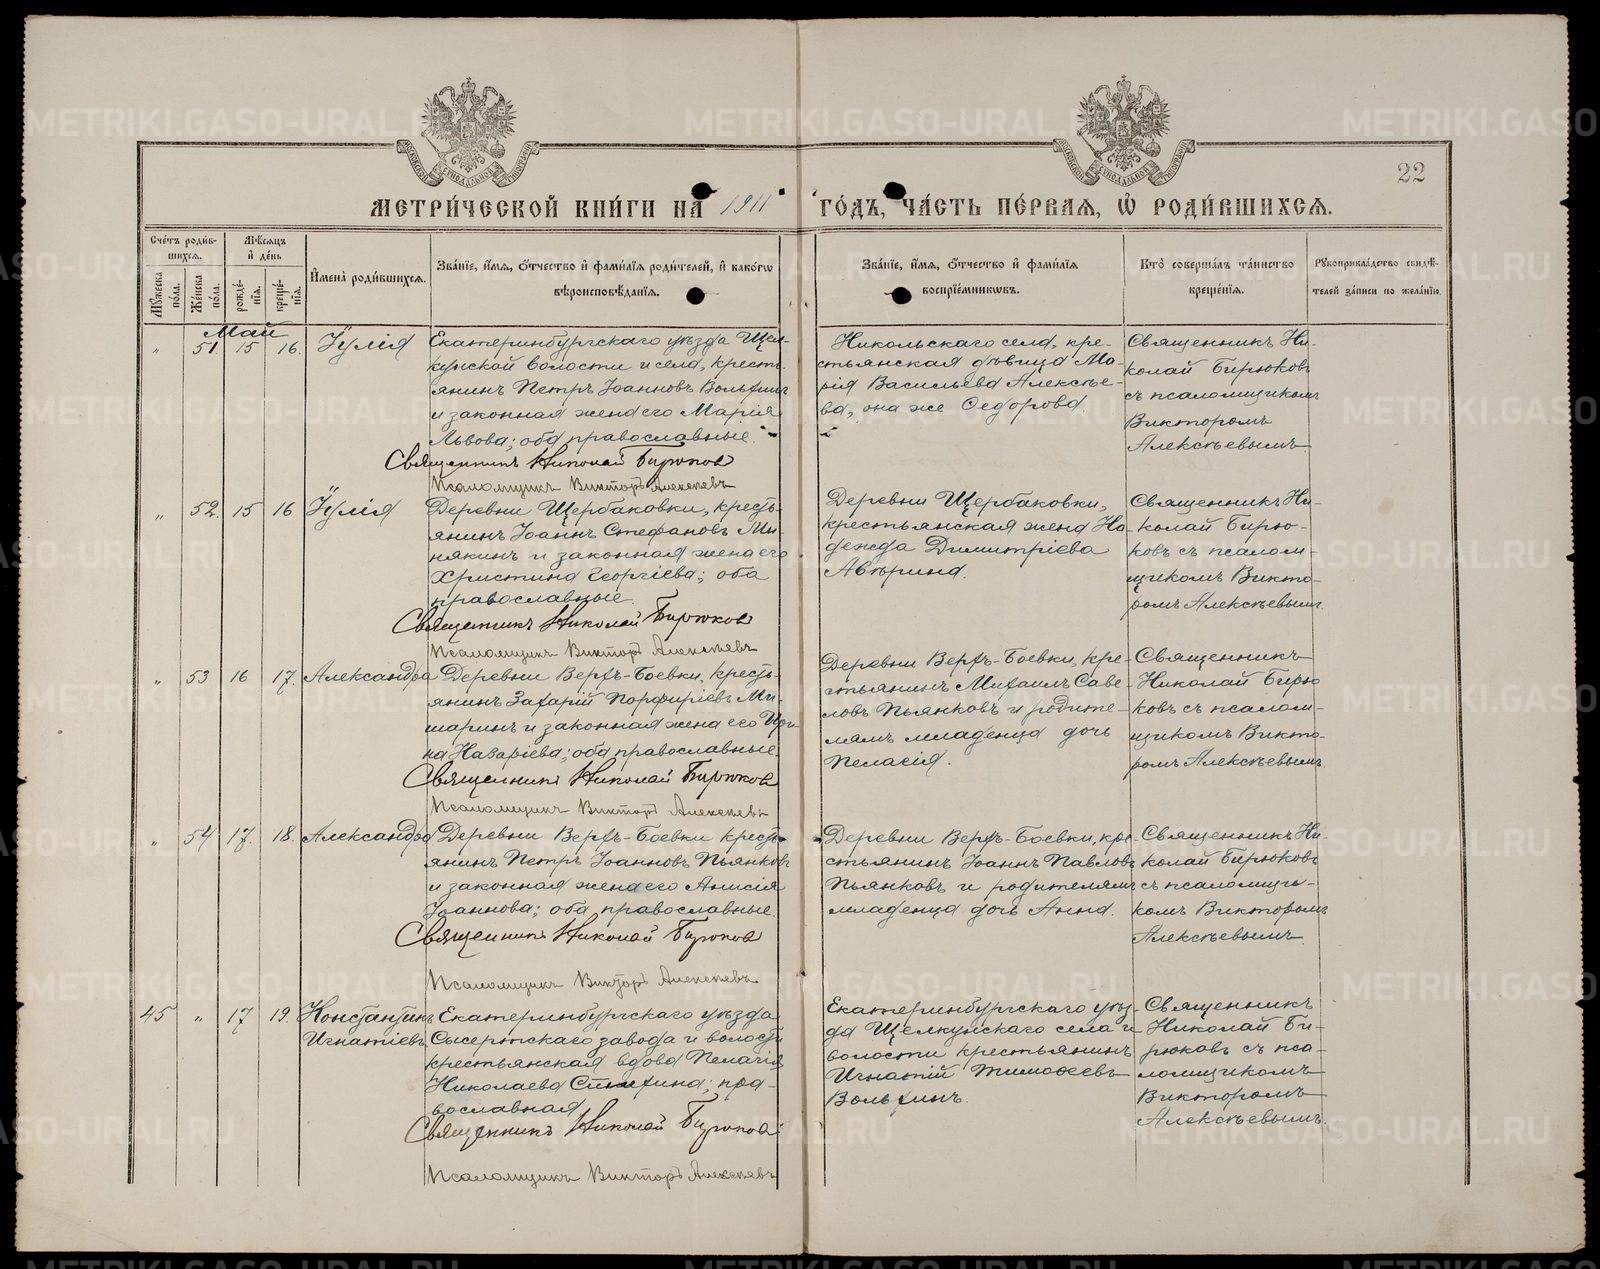 22
МЕТРИ́ЧЕСКОЙ КНИ́ГИ НА 1911 ГО́ДЪ, ЧА́СТЬ ПЕ́РВАЯ, Ѡ҆ РОДИ́ВШИХСЯ.
Сче́тъ роди́вшихся.
Мꙋ́жеска по́ла.
Же́нска по́ла.
Мѣ́сяцъ и҆ де́нь
рожде́нїя.
креще́нїя.
И҆мена̀ роди́вшихся.
Зва́нїе, и҆́мя, ѻ҆́тчество и҆ фами́лїя роди́телей, и҆ како́гѡ
вѣроисповѣ́данїя.
Зва́нїе, и҆́мя, ѻ҆́тчество и҆ фами́лїя
воспрїе́мниковъ.
Кто̀ соверша́лъ та́инство
креще́нїя.
Рꙋкоприкла́дство свидѣ́-
телей за́писи по жела́нїю.
Май
„ 51 15 16. Іулія
Екатеринбургскаго уѣзда Щел-
кунской волости и села, кресть-
янинъ Петръ Іоанновъ Вольхинъ
и законная жена его Марія
Львова; оба православные.
Священникъ Николай Бирюков
Псаломщикъ Викторъ Алексѣевъ
Никольскаго села, кре-
стьянская дѣвица Ма-
рія Васильева Алексѣе-
ва, она же Ѳедорова.
Священникъ Ни-
колай Бирюковъ
съ псаломщикомъ
Викторомъ
Алексѣевымъ.
„ 52. 15 16 Іулія
Деревни Щербаковки, кресть-
янинъ Іоаннъ Стефановъ Ми-
някинъ и законная жена его
Христина Георгіева; оба
православные.
Священникъ Николай Бирюков
Псаломщикъ Викторъ Алексѣевъ
Деревни Щербаковки,
крестьянская жена На-
дежда Димитріева
Авѣрина.
Священникъ Ни-
колай Бирю-
ковъ съ псалом-
щикомъ Викто-
ромъ Алексѣевымъ.
„ 53 16 17. Александра
Деревни Верхъ-Боевки, кресть-
янинъ Захарій Порфиріевъ Ми-
шаринъ и законная жена его Ири-
на Назаріева; оба православные.
Священникъ Николай Бирюков
Псаломщикъ Викторъ Алексѣевъ
Деревни Верхъ-Боевки, кре-
стьянинъ Михаилъ Саве-
ловъ Пьянковъ и родите-
лямъ младенца дочь
Пелагія.
Священникъ
Николай Бирю
ковъ съ псалом-
щикомъ Викто-
ромъ Алексѣевымъ.
„ 54 17. 18. Александра
Деревни Верхъ-Боевки кресть-
янинъ Петръ Іоанновъ Пьянковъ
и законная жена его Анисія
Іоаннова; оба православные.
Священникъ Николай Бирюков
Псаломщикъ Викторъ Алексѣевъ
Деревни Верхъ-Боевки, кре-
стьянинъ Іоаннъ Павловъ
Пьянковъ и родителямъ
младенца дочь Анна.
Священникъ Ни-
колай Бирюковъ
съ псаломщи-
комъ Викторомъ
Алексѣевымъ.
45 „ 17 19. Константинъ
Игнатіевъ
Екатеринбургскаго уѣзда
Сысертскаго завода и волости
крестьянская вдова Пелагія
Николаева; пра-
вославная
Священникъ Николай Бирюков
Псаломщикъ Викторъ Алексѣевъ
Екатеринбургскаго уѣз-
да Щелкунскаго села и
волости крестьянинъ
Игнатій Тимоѳеевъ
Вольхинъ.
Священникъ
Николай Би-
рюковъ съ пса-
ломщикомъ
Викторомъ
Алексѣевымъ.
METRIKI.GASO-URAL.RU